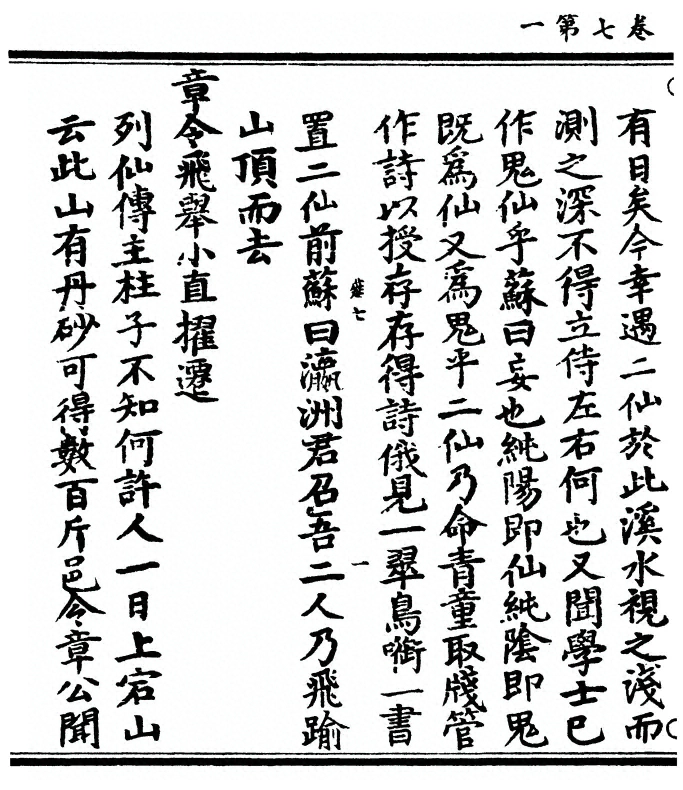 卷七第一
有日矣今幸遇二仙於此溪水視之淺而
測之深不得立侍左右何也又聞學士已
作鬼仙乎蘇曰妄也純陽即仙純陰即鬼
既爲仙又爲鬼乎二仙乃命青童取牋管
作詩以授存存得詩俄見一翠鳥啣一書
蕋七 一
置二仙前蘇曰瀛洲君召吾二人乃飛踰
山頂而去
章令飛舉小直擢遷
列仙傳主柱子不知何許人一日上宕山
云此山有丹砂可得數百斤邑令章公聞